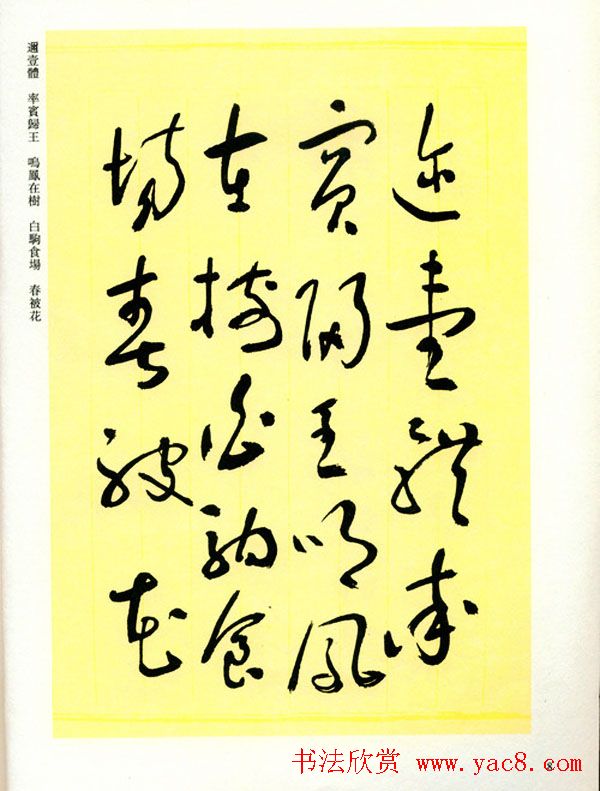 邇壹體率
賓歸王鳴鳳
在樹白駒食
場春被花
邇壹體　率賓歸王　鳴鳳在樹　白駒食場　春被花
书法欣赏 www.yac8.com